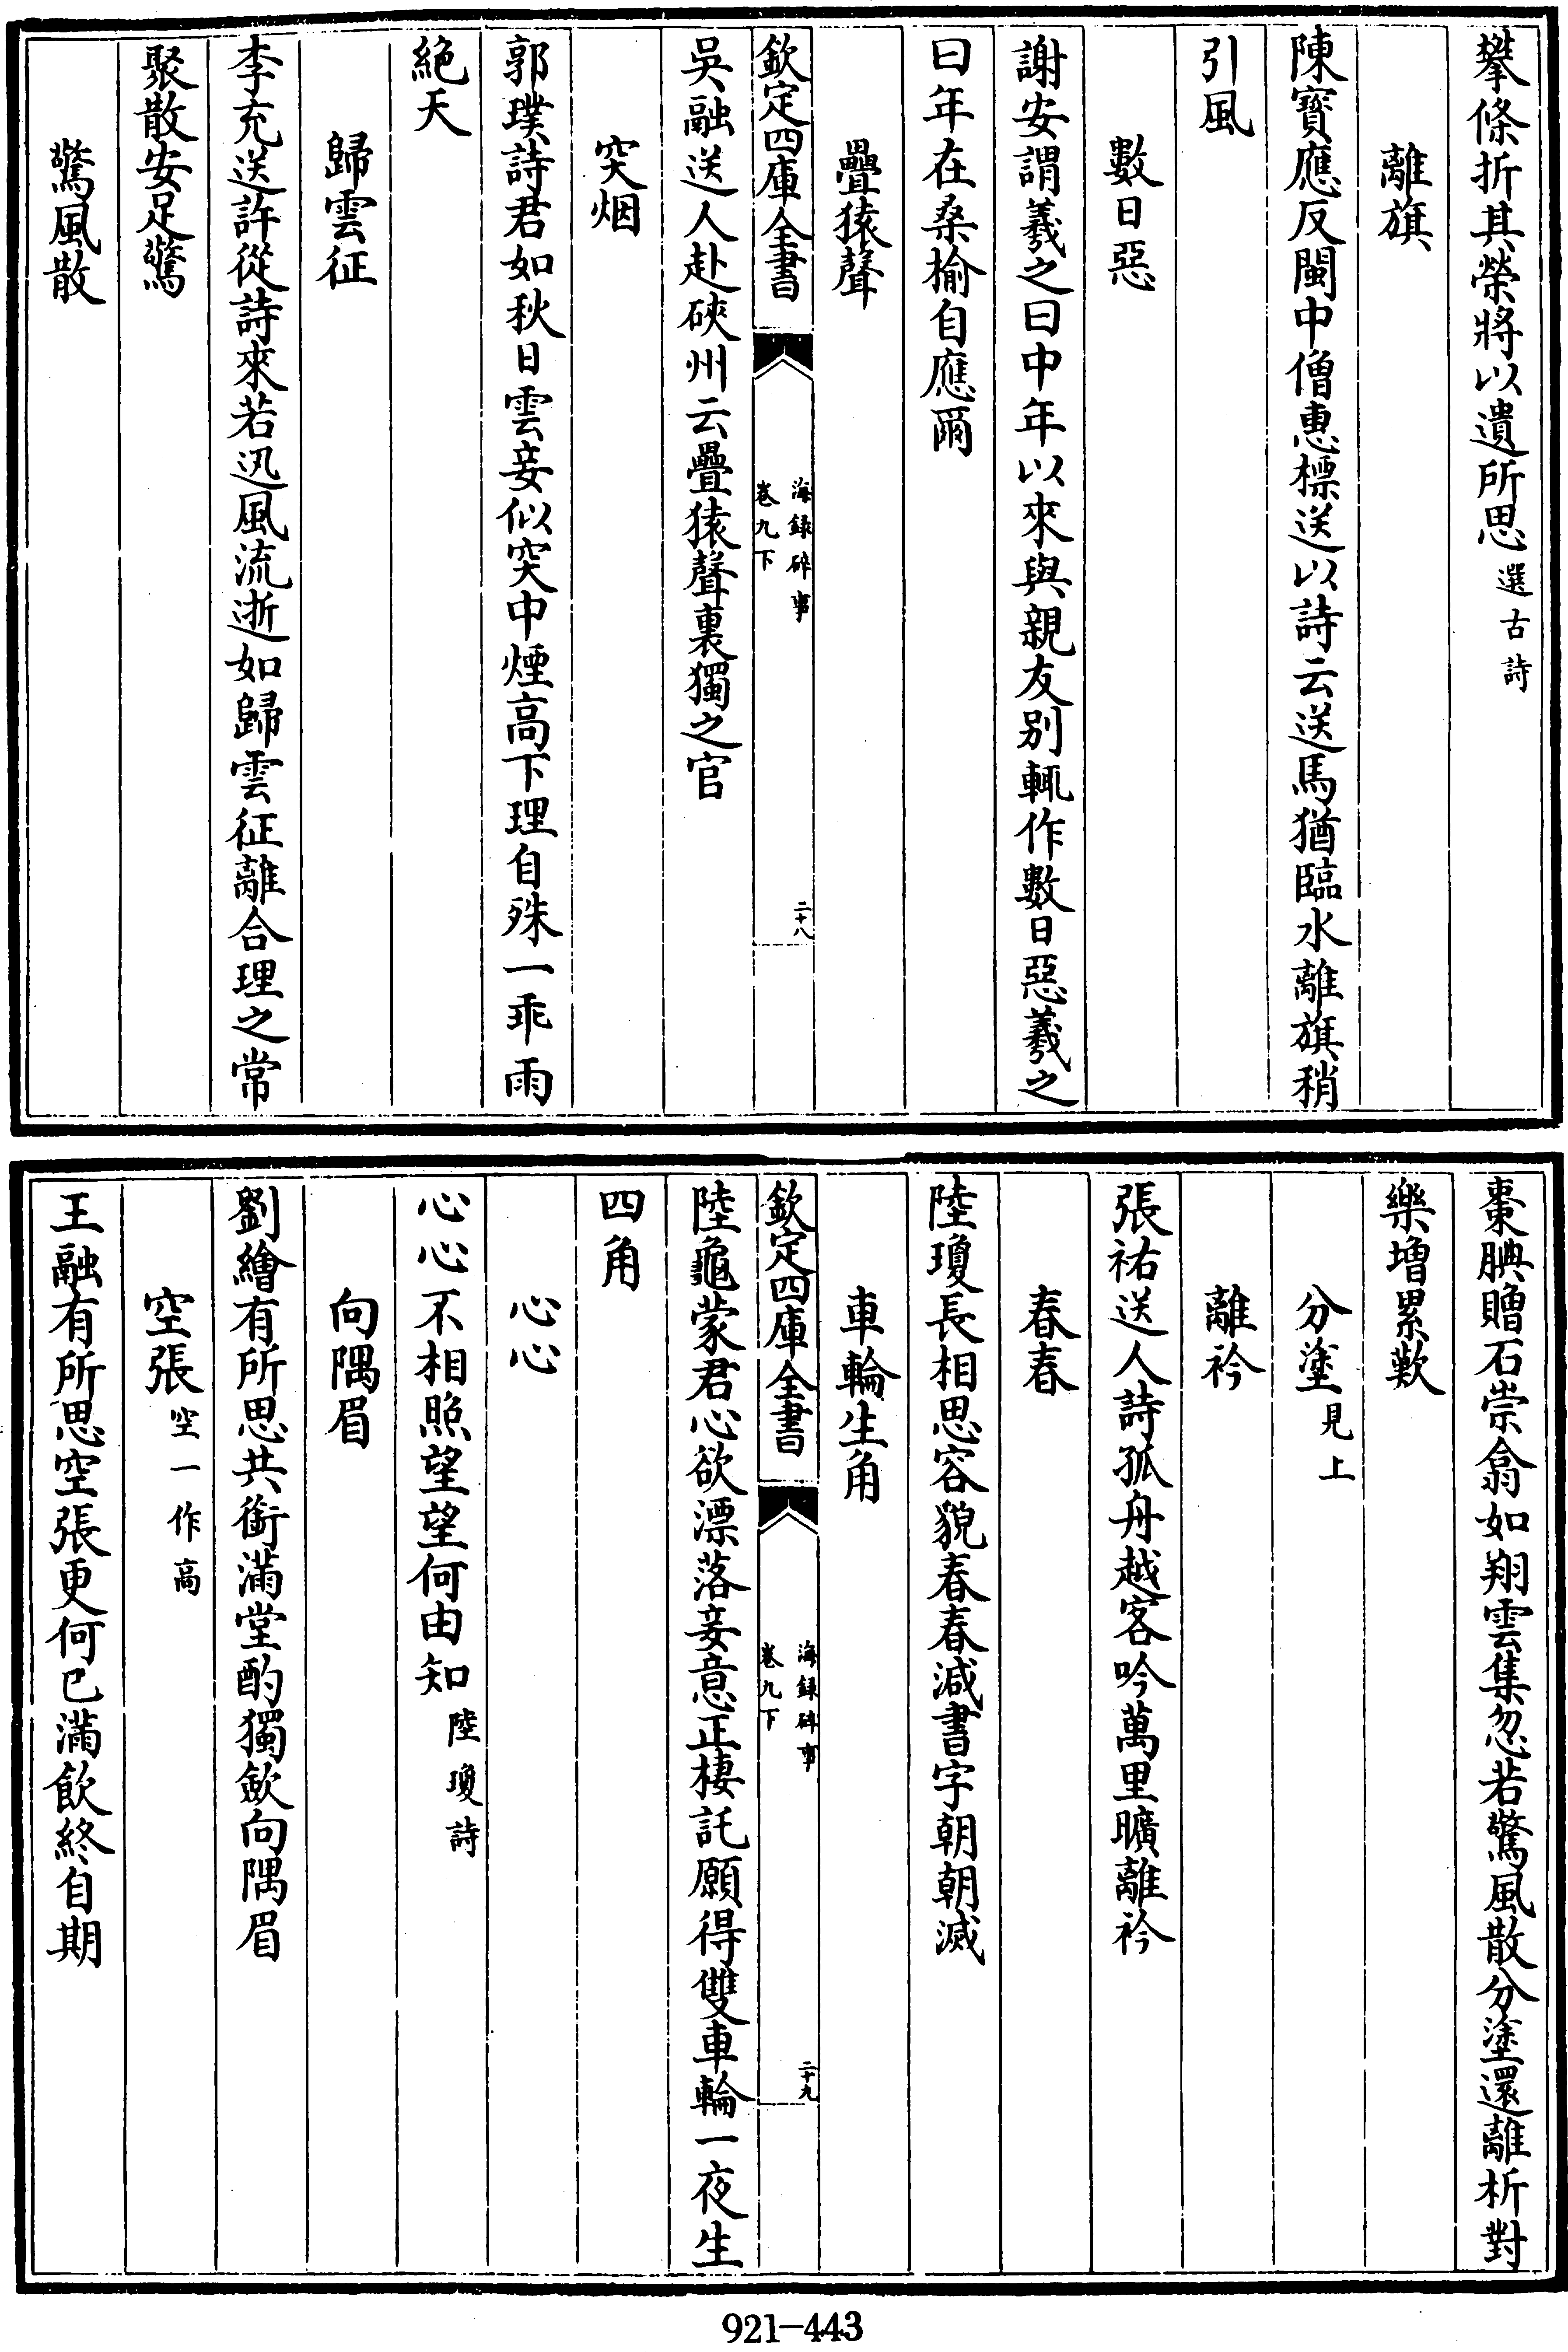 攀條折其榮將以遺所思選古詩
離旗
陳寳應反閩中僧惠標送以詩云送馬猶臨水離旗稍
引風
數日惡
謝安謂羲之曰中年以來與親友別輒作數日惡羲之
曰年在桑榆自應爾
疊猿聲
欽定四庫全書
海録碎事
卷九下
二十八
吳融送人赴硤州云疊猿聲裏獨之官
突烟
郭璞詩君如秋日雲妾似突中煙高下理自殊一乖雨
絶天
歸雲征
李充送許從詩來若迅風流逝如歸雲征離合理之常
聚散安足驚
驚風散
棗腆贈石崇翕如翔雲集忽若驚風散分塗還離析對
樂増累歎
分塗見上
離衿
張祐送人詩孤舟越客吟萬里曠離衿
春春
陸瓊長相思容貌春春減書字朝朝滅
車輪生角
欽定四庫全書
海録碎事
卷九下
二十九
陸龜蒙君心欲漂落妾意正棲託願得雙車輪一夜生
四角
心心
心心不相照望望何由知陸瓊詩
向隅眉
劉繪有所思共銜滿堂酌獨歛向隅眉
空張空一作高
王融有所思空張更何已滿飲終自期
921-443